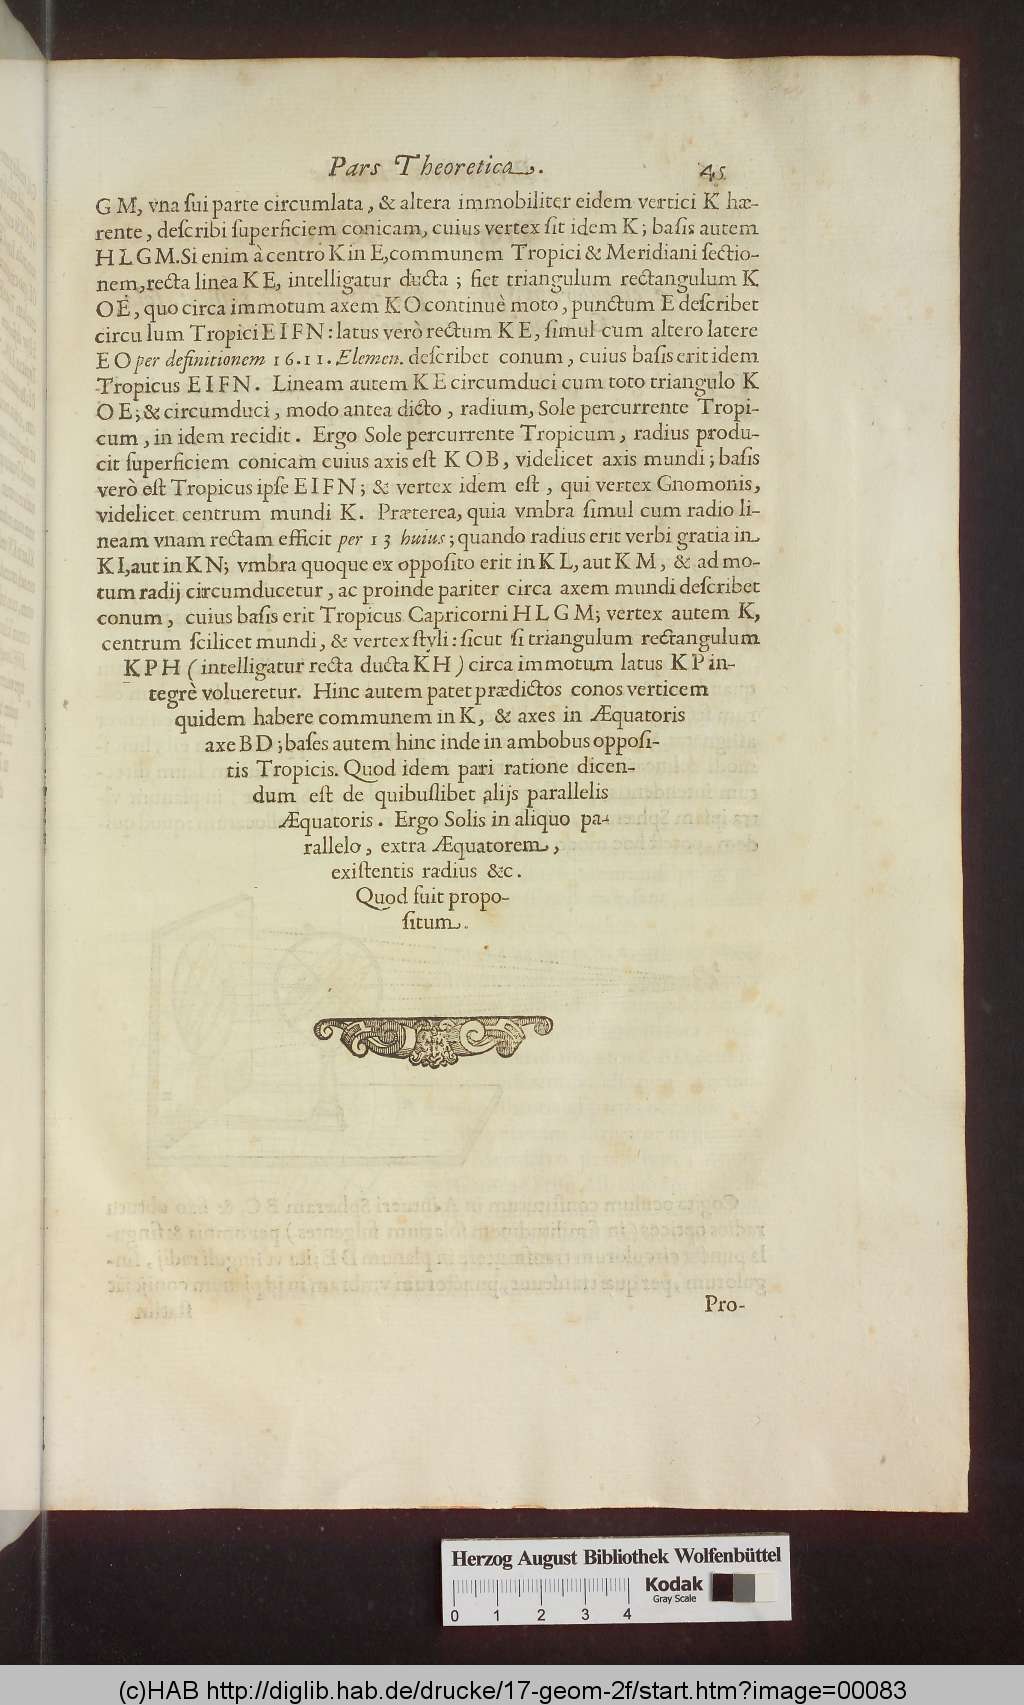 Pars Theoretica. 45
G M, vna ſui parte circumlata, & altera immobiliter eidem vertici K hæ-
rente, deſcribi ſuperficiem conicam, cuius vertex ſit idem K; baſis autem
H L G M. Si enim à centro K in E, communem Tropici & Meridiani ſectio-
nem, recta linea K E, intelligatur ducta; fiet triangulum rectangulum K
O E, quo circa immotum axem K O continuè moto, punctum E deſcribet
circu lum Tropici E I F N: latus verò rectum K E, ſimul cum altero latere
E O per definitionem 16.11. Elemen. deſcribet conum, cuius baſis erit idem
Tropicus E I F N. Lineam autem K E circumduci cum toto triangulo K
O E; & circumduci, modo antea dicto, radium, Sole percurrente Tropi-
cum, in idem recidit. Ergo Sole percurrente Tropicum, radius produ-
cit ſuperficiem conicam cuius axis eſt K O B, videlicet axis mundi; baſis
verò eſt Tropicus ipſe E I F N; & vertex idem eſt, qui vertex Gnomonis,
videlicet centrum mundi K. Præterea, quia vmbra ſimul cum radio li-
neam vnam rectam efficit per 13 huius; quando radius erit verbi gratia in
K I, aut in K N; vmbra quoque ex oppoſito erit in K L, aut K M, & ad mo-
tum radij circumducetur, ac proinde pariter circa axem mundi deſcribet
conum, cuius baſis erit Tropicus Capricorni H L G M; vertex autem K,
centrum ſcilicet mundi, & vertex ſtyli: ſicut ſi triangulum rectangulum
K P H (intelligatur recta ducta K H) circa immotum latus K P in-
tegrè volueretur. Hinc autem patet prædictos conos verticem
quidem habere communem in K, & axes in Æquatoris
axe B D; baſes autem hinc inde in ambobus oppoſi-
tis Tropicis. Quod idem pari ratione dicen-
dum eſt de quibuſlibet alijs parallelis
Æquatoris. Ergo Solis in aliquo pa-
rallelo, extra Æquatorem,
exiſtentis radius &c.
Quod fuit propo-
ſitum.
Pro-
Herzog August Bibliothek Wolfenbüttel
Kodak
Gray Scale
0 1 2 3 4
(c)HAB http://diglib.hab.de/drucke/17-geom-2f/start.htm?image=00083